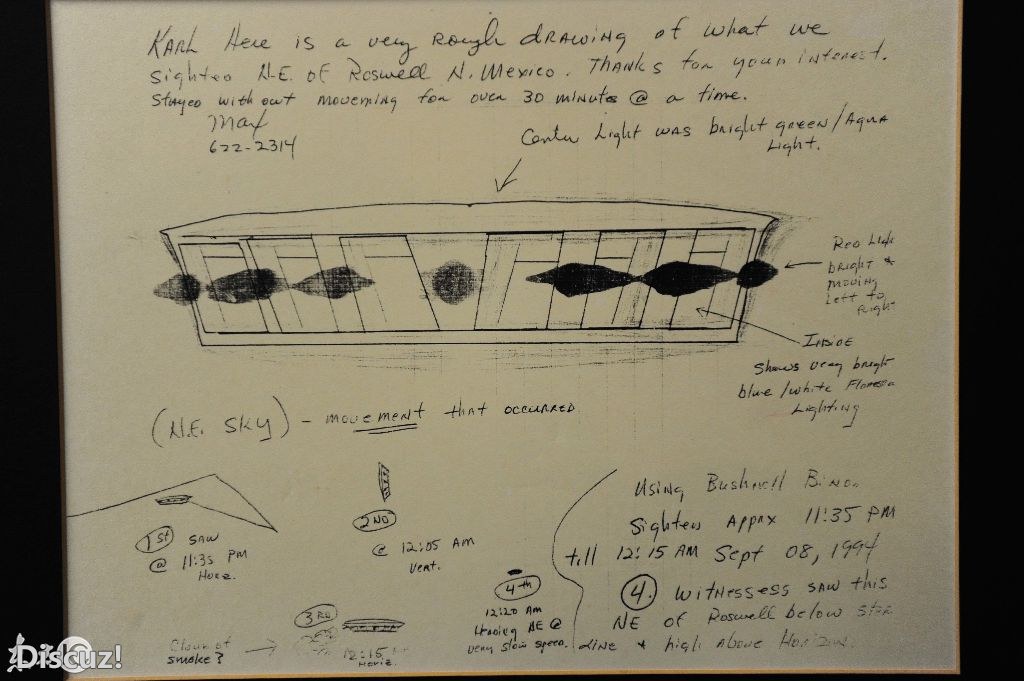 Karl Here is a very Rough drawing of what we
sighted N.E. of Roswell N. Mexico. Thanks for your interest.
Stayed with out moveming for over 30 minute @ a time.
Max
622-2314
Center Light was bright green/Aqua
Light.
Red Light
bright &
moving
Left to
Right
Inside
Shows very bright
blue/white
Lighting
(N.E. SKY) - movement that occurred
1st saw
@ 11:35 PM
Horz.
2ND
@ 12:05 AM
Vert.
3RD
Cloud of
smoke?
12:15
Horiz.
4th
12:20 Am
Heading NE @
very slow speed.
Using Bushnell Bino.
Sighted Apprx 11:35 PM
till 12:15 AM Sept 08, 1994
4. witnessess saw this
NE of Roswell below Star
Line & high above Horizon.
Discuz!